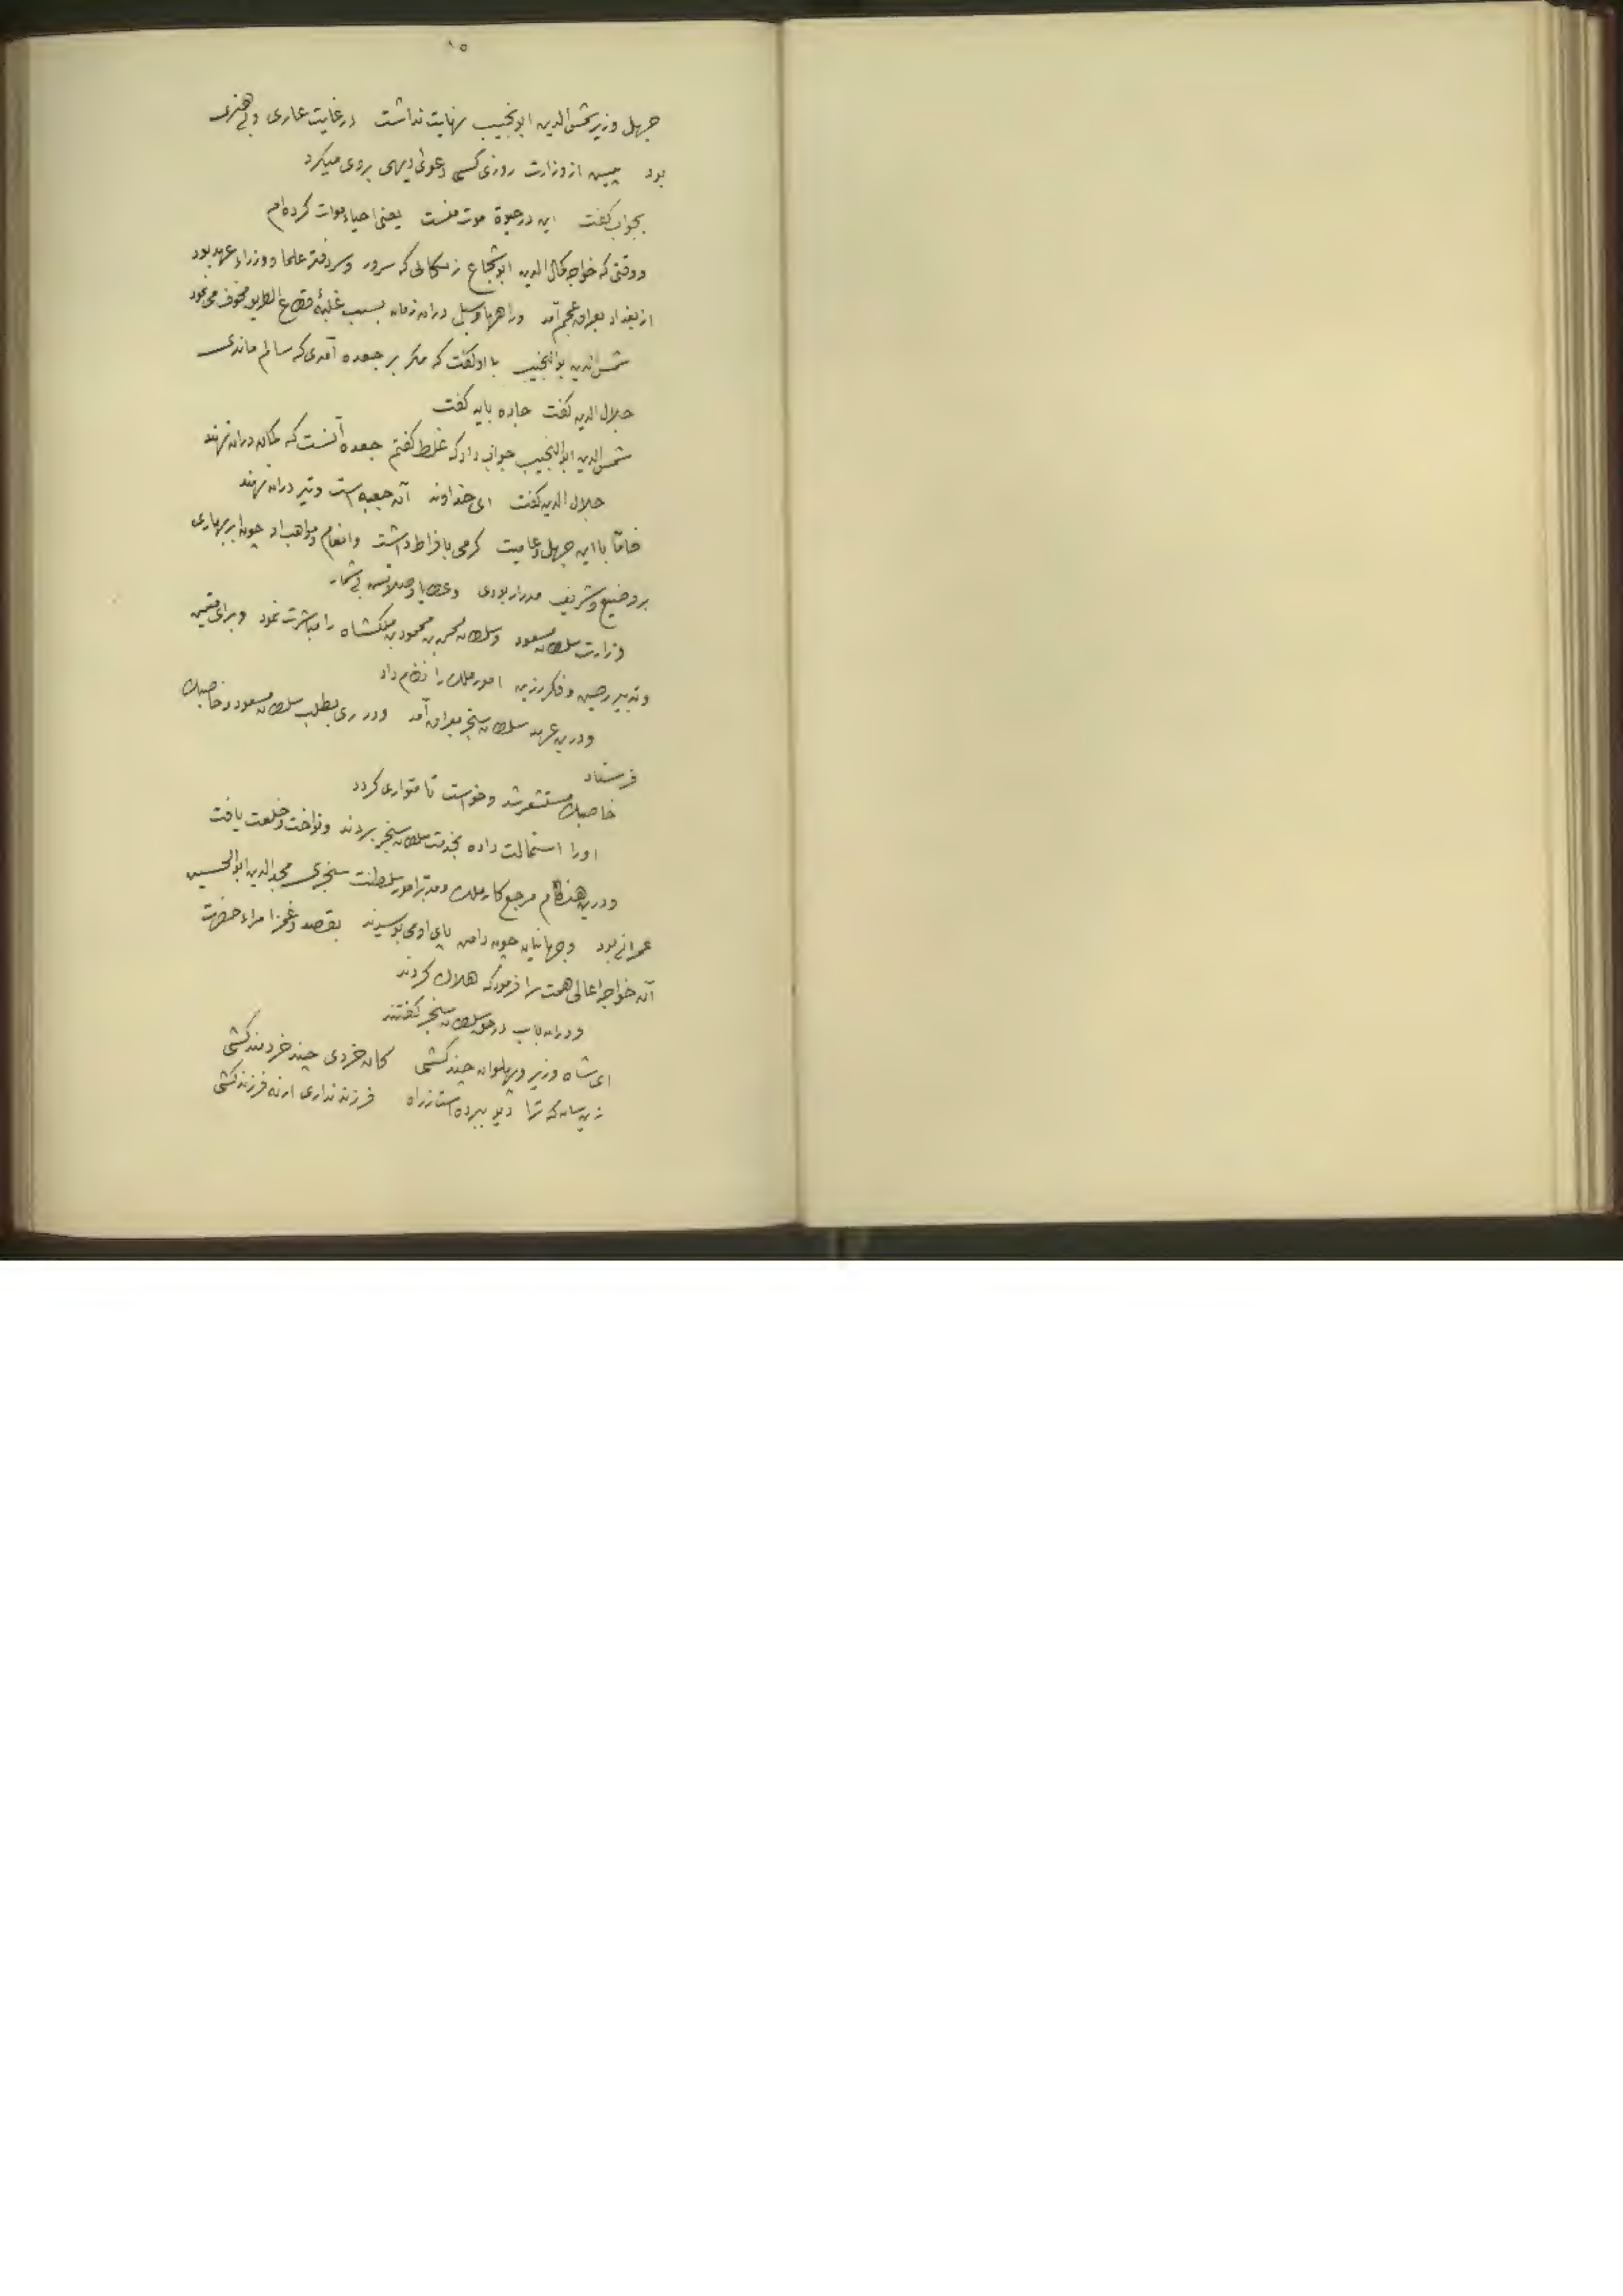 ۱۵
جهل وزیر شمس‌الدین ابونجیب نهایت نداشت در غایت عاری و بی هنری
بود پیش از وزارت روزی کسی دعوی دیهی بروی میکرد
بجواب گفت این در حیوة موت منست یعنی احیاء موات کرده‌ام
ووقتی که خواجه کمال الدین ابوشجاع که سرور وسر دفتر علما ووزراء عهد بود
از بغداد بعراق عجم آمد وراهها وسبل دران زمان بسبب غلبهٔ قطاع الطریق مخوف می نمود
شمس‌الدین بوالنجیب با او گفت که مگر بر جعده آمدی که سالم ماندی
جلال الدین گفت جاده باید گفت
شمس‌الدین ابوالنجیب جواب داد که غلط گفتم جعده آنست که کمان دران نهند
جلال الدین گفت ای خداوند آن جعبه است وتیر دران نهند
فامّا با این جهل وعامیت کرمی بافراط داشت وانعام ومواهب او چون ابر بهاری
بر وضیع وشریف مدرار بودی وعطایا وصلاتش بی شمار
وزارت سلطان مسعود وسلطان محمد بن محمود بن ملکشاه را مباشرت نمود وبرای متین
وتدبیر رصین وفکر رزین امور ملک را نظام داد
ودرین عهد سلطان سنجر بعراق آمد ودر ری بطلب سلطان مسعود وخاصبک
فرستاد
خاصبک مستشعر شد وخواست تا متواری گردد
اورا استمالت داده بخدمت سلطان سنجر بردند ونواخت وخلعت یافت
ودرین هنگام مرجع کار ملک ومدبّر امور سلطنت سنجری مجیرالدین ابوالحسین
عمرانی بود وجهانیان چون دامن پای او می بوسیدند بقصد وغمز امراء حضرت
آن خواجهٔ عالی همت را فرمود که هلاک کردند
ودران باب در حق سلطان سنجر گفتند
ای شاه وزیر وپهلوان چند کشی کان خردی چند خردمند کشی
زین سان که ترا دیو ببرده است زراه فرزند نداری ارنه فرزند کشی